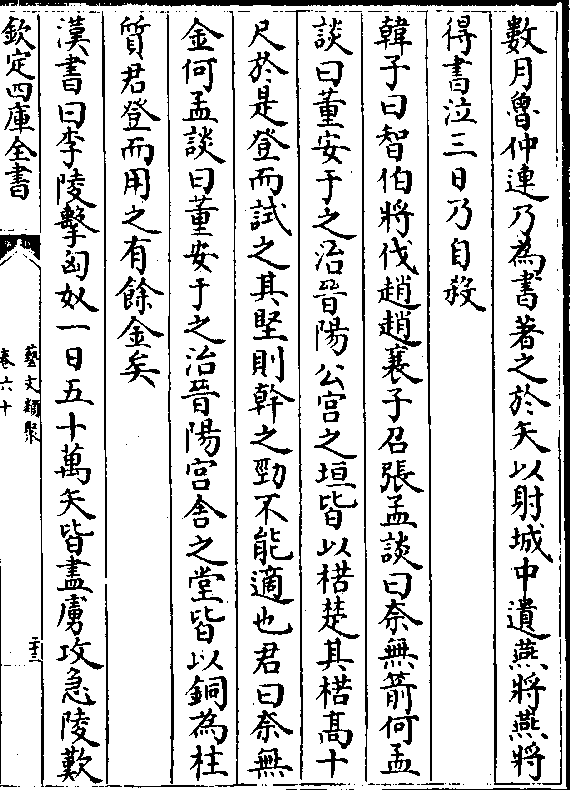 數月魯仲連乃為書著之於矢以射城中遺燕將燕將
得書泣三日乃自殺
韓子曰智伯將伐趙趙襄子召張孟談曰奈無箭何孟
談曰董安于之治晉陽公宫之垣皆以楛楚其楛髙十
尺於是登而試之其堅則幹之勁不能適也君曰奈無
金何孟談曰董安于之治晉陽宫舎之堂皆以銅為柱
質君登而用之有餘金矣
漢書曰李陵擊匈奴一日五十萬矢皆盡虜攻急陵歎
欽定四庫全書
藝文類聚
卷六十
二十三